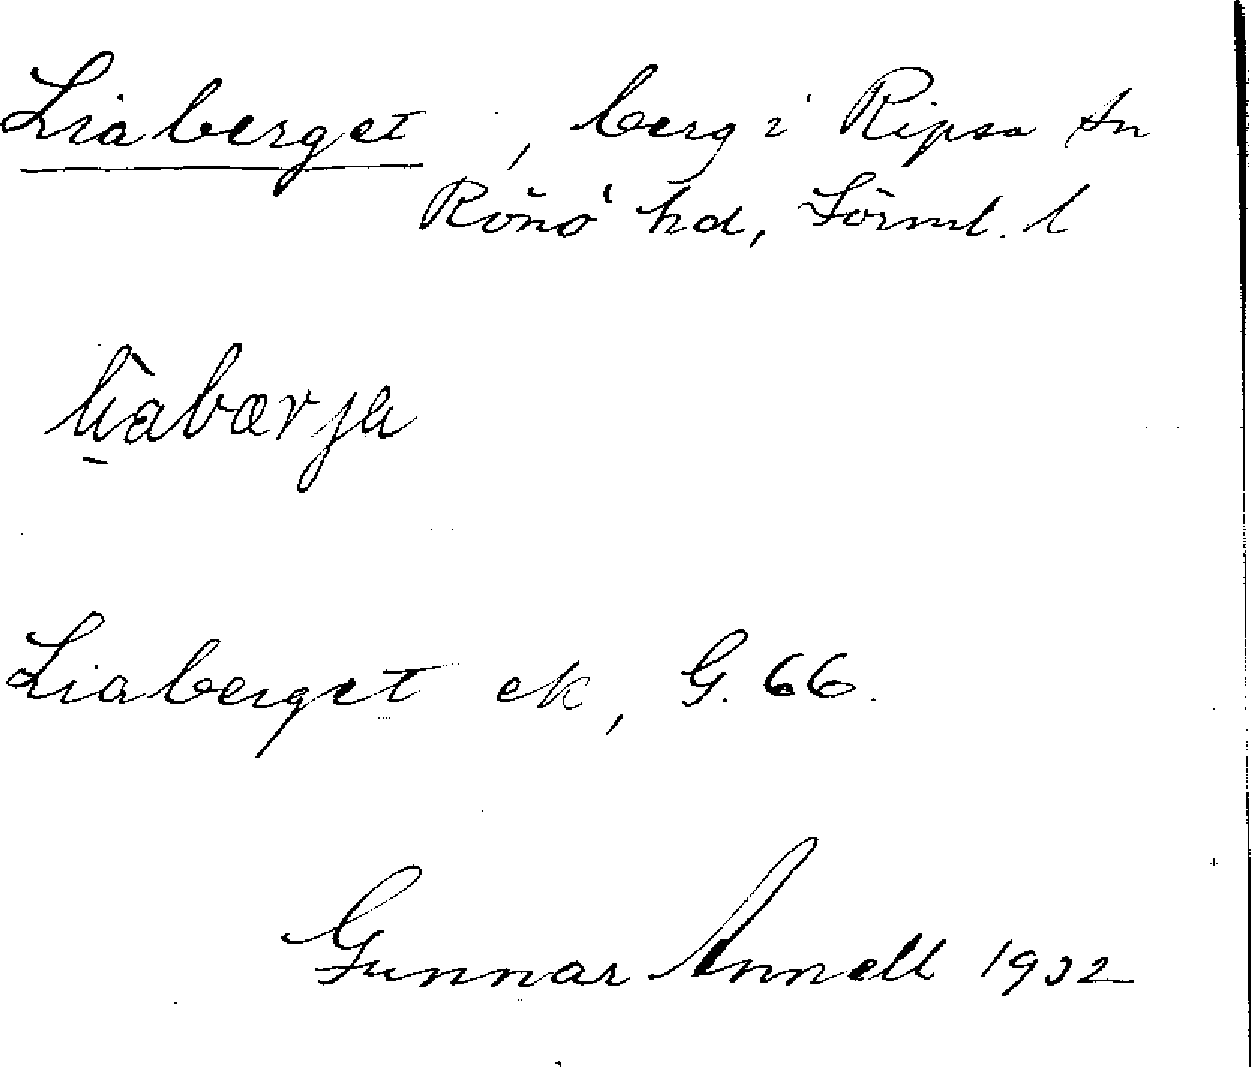 Liaberget, berg i Ripsa sn
Rönö hd, Sörml. l
lìabærja
Liaberget ek, G. 66.
Gunnar Annell 1932